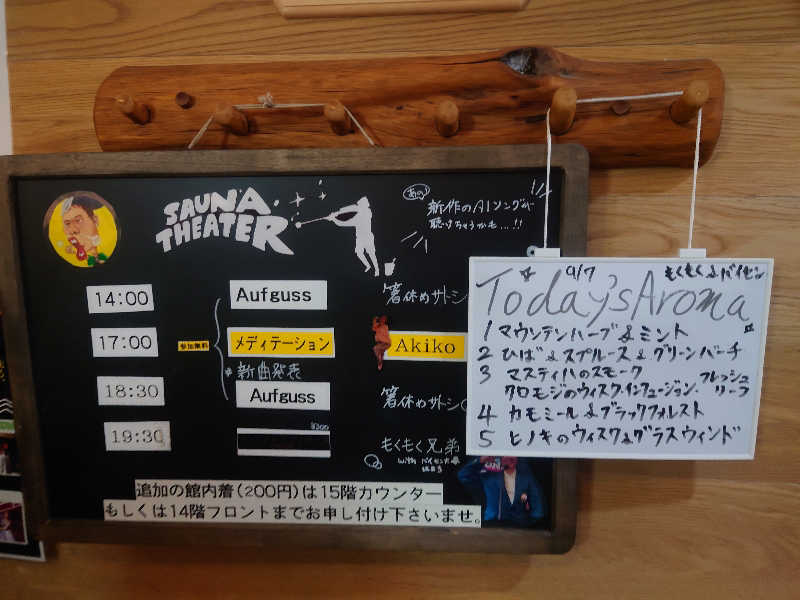 SAUNA
THEATER
あの!
新作のAIソングが
聴けちゃうかも...!!
14:00 Aufguss 箸休めサトシ
17:00 参加無料 メディテーション Akiko
新曲発表
18:30 Aufguss 箸休めサトシ
19:30 ¥200 もくもく兄弟
with バイセン
追加の館内着(200円)は15階カウンター
もしくは14階フロントまでお申し付け下さいませ。
9/7 もくもく&バイセン
Today'sAroma
1 マウンテンハーブ&ミント
2 ひば&スプルース&グリーンバーチ
3 マスティハのスモーク
クロモジのウィスクインフュージョン、フレッシュリーフ
4 カモミール&ブラックフォレスト
5 ヒノキのウィスク&グラスウィンド